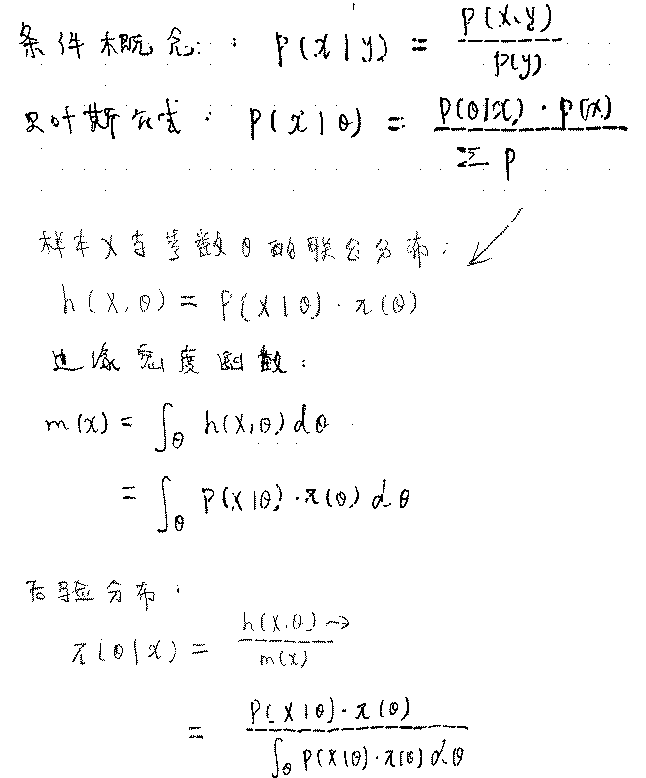 条件概念: P(x|y) = P(x,y) / P(y)
贝叶斯公式: P(x|θ) = P(θ|x)·P(x) / Σ P
样本X与参数θ的联合分布:
h(X,θ) = P(X|θ)·π(θ)
边缘密度函数:
m(x) = ∫_θ h(X,θ) dθ
= ∫_θ P(X|θ)·π(θ) dθ
后验分布:
π(θ|x) = h(X,θ) → / m(x)
= P(X|θ)·π(θ) / ∫_θ P(X|θ)·π(θ) dθ